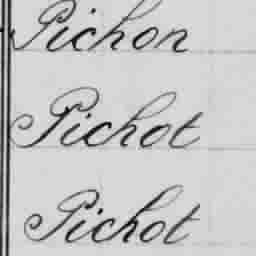 Pichon
Pichot
Pichot